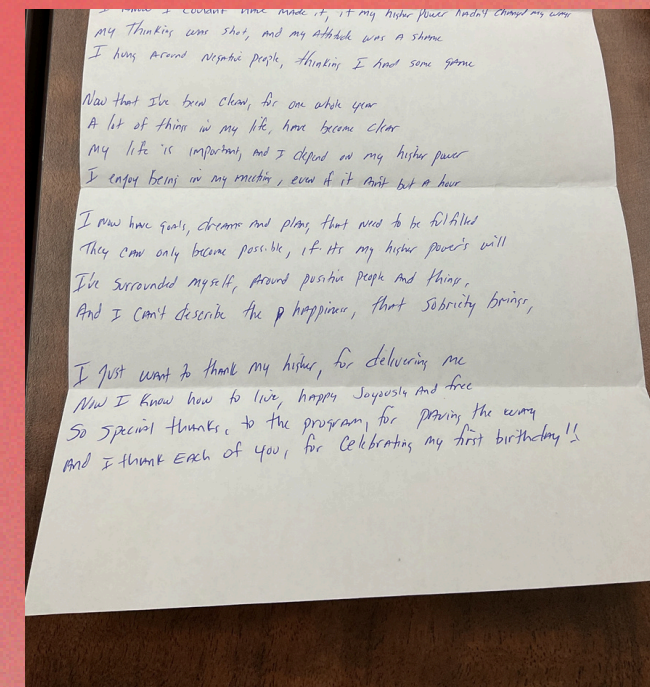 I know I couldn't have made it, if my higher power hadn't changed my ways
my Thinking was shot, and my Attitude was A shame
I hung Around Negative people, thinking I had some game
Now that I've been clean, for one whole year
A lot of things in my life, have become clear
my life is important, and I depend on my higher power
I enjoy being in my meeting, even if it Ain't but A hour
I now have goals, dreams and plans, that need to be fulfilled
They can only become possible, if its my higher power's will
I've surrounded myself, Around positive people And things,
And I can't describe the p happiness, that Sobriety brings,
I Just want to thank my higher, for delivering me
Now I Know how to live, happy Joyously And free
So Special thanks, to the program, for paving the way
And I thank Each of you, for Celebrating my first birthday!!